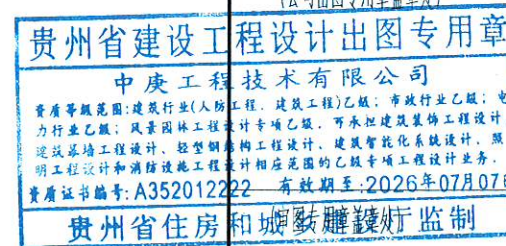 贵州省建设工程设计出图专用章
中庚工程技术有限公司
资质等级范围:建筑行业(人防工程、建筑工程)乙级；市政行业乙级；电
力行业乙级；风景园林工程设计专项乙级。可承担建筑装饰工程设计
建筑幕墙工程设计、轻型钢结构工程设计、建筑智能化系统设计、照
明工程设计和消防设施工程设计相应范围的乙级专项工程设计业务。
资质证书编号:A352012222 有效期至:2026年07月07
贵州省住房和城乡建设厅监制